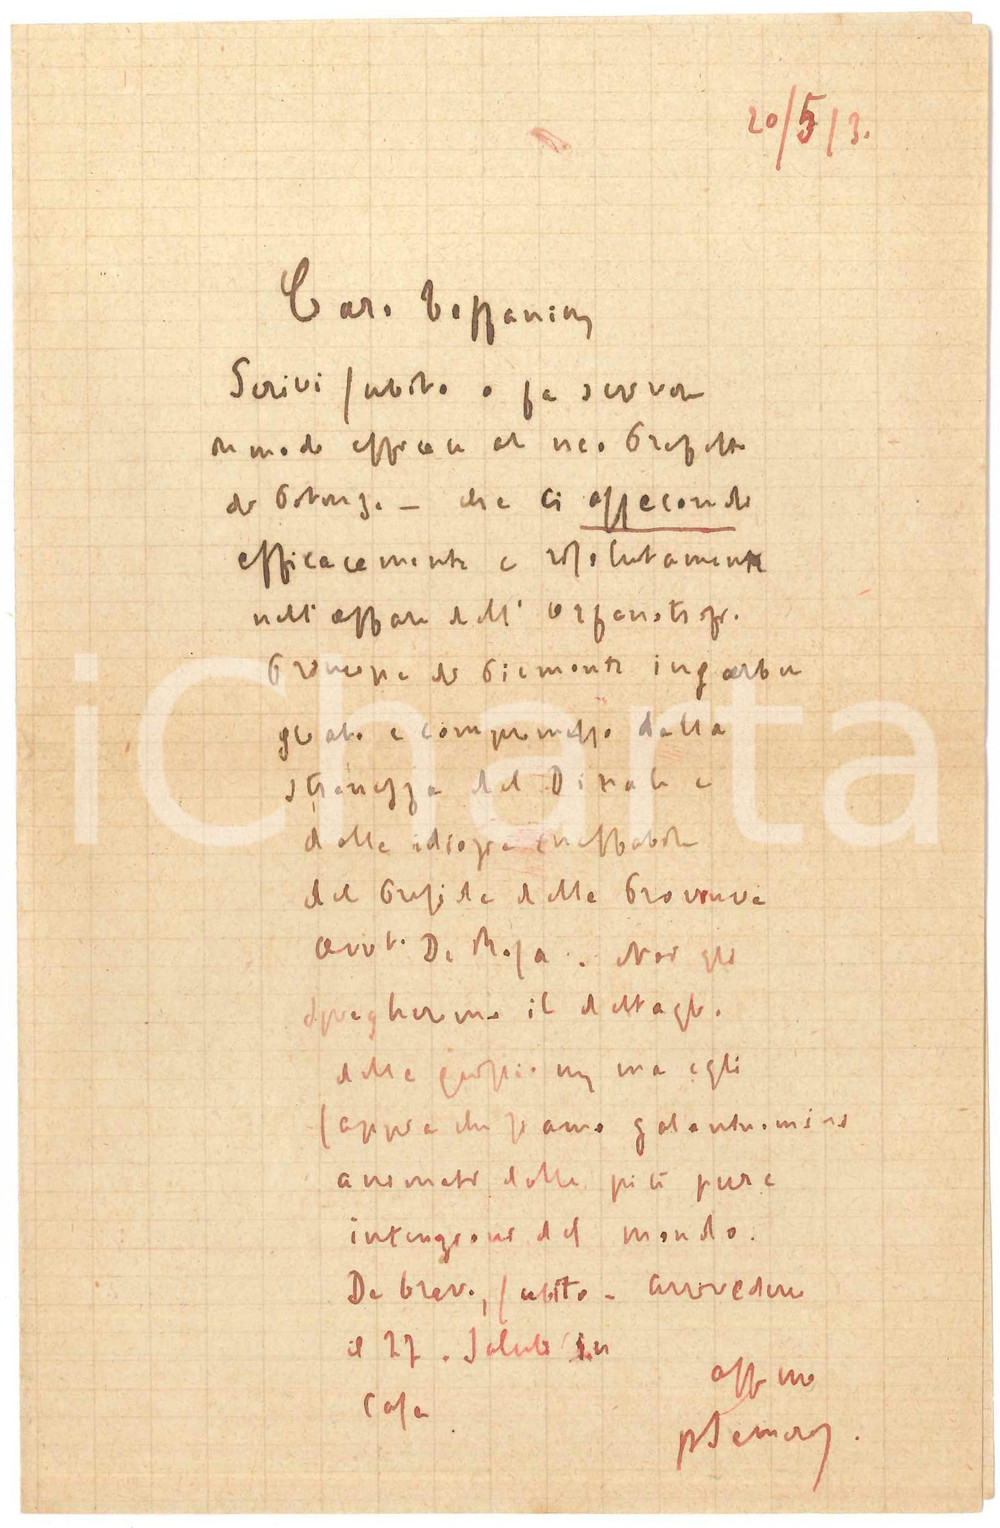 20/5/3.
Caro Toffanin,
Scrivi subito o fa scrivere
in modo efficace al neo Prefetto
di Potenza — che ci assecondi
efficacemente e risolutamente
nell'affare dell'Orfanotrofio
Principe di Piemonte ingarbu
gliato e compromesso dalla
stranezza del e
dalle idiozie ineffabili
del Preside della Provincia
avv. De Rosa. Noi gli
spiegheremo il dettaglio
della ma egli
sappia che siamo galantuomini
animati dalle più pure
intenzioni del mondo.
Da bravo, subito — arrivederci
il 27. Saluti in
casa
aff mo
iCharta